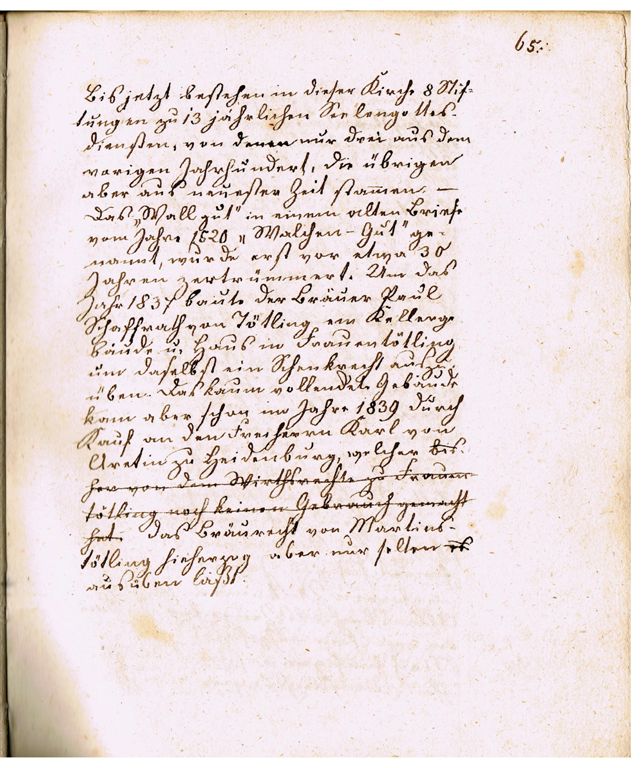 65.
Bis jetzt bestehen in dieser Kirche 8 Stif-
tungen zu 13 jährlichen Seelengottes-
diensten, von denen nur drei aus dem
vorigen Jahrhundert, die übrigen
aber aus neuester Zeit stammen. —
Das „Wallgut" in einem alten Briefe
vom Jahre 1520 „Walchen-Gut" ge-
nannt, wurde erst vor etwa 30
Jahren zertrümmert. Um das
Jahr 1837 baute der Bräuer Paul
Schaffrath von Tötling ein Kellerge-
bäude u. Haus in Frauentötling,
um daselbst ein Schenkrecht aus-
üben. Das kaum vollendete Gebäude
kam aber schon im Jahre 1839 durch
Kauf an den Freiherrn Karl von
Aretin zu Heidenburg, welcher bis-
her von dem Wirthsrechte zu Frauen
tötling noch keinen Gebrauch gemacht
hat. das Bräurecht von Martins-
tötling hieherzog aber nur selten
ausüben läßt.